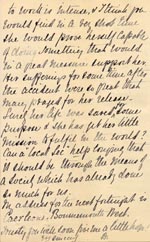 to work is intense, & I think you
would find in a very short time
she would prove herself capable
of doing something that would
in a great measure support her.
Her sufferings for some time after
the accident were so great that
many prayed for her release.
Surely her life was saved for some
purpose & she has yet her little
mission to fulfil in the world?
Can a local be help longing that
it should be through the means of
a society which has already done
so much for us.
My address for the next fortnight is
Bournemouth West.
Trusting you will soon give me a little hope